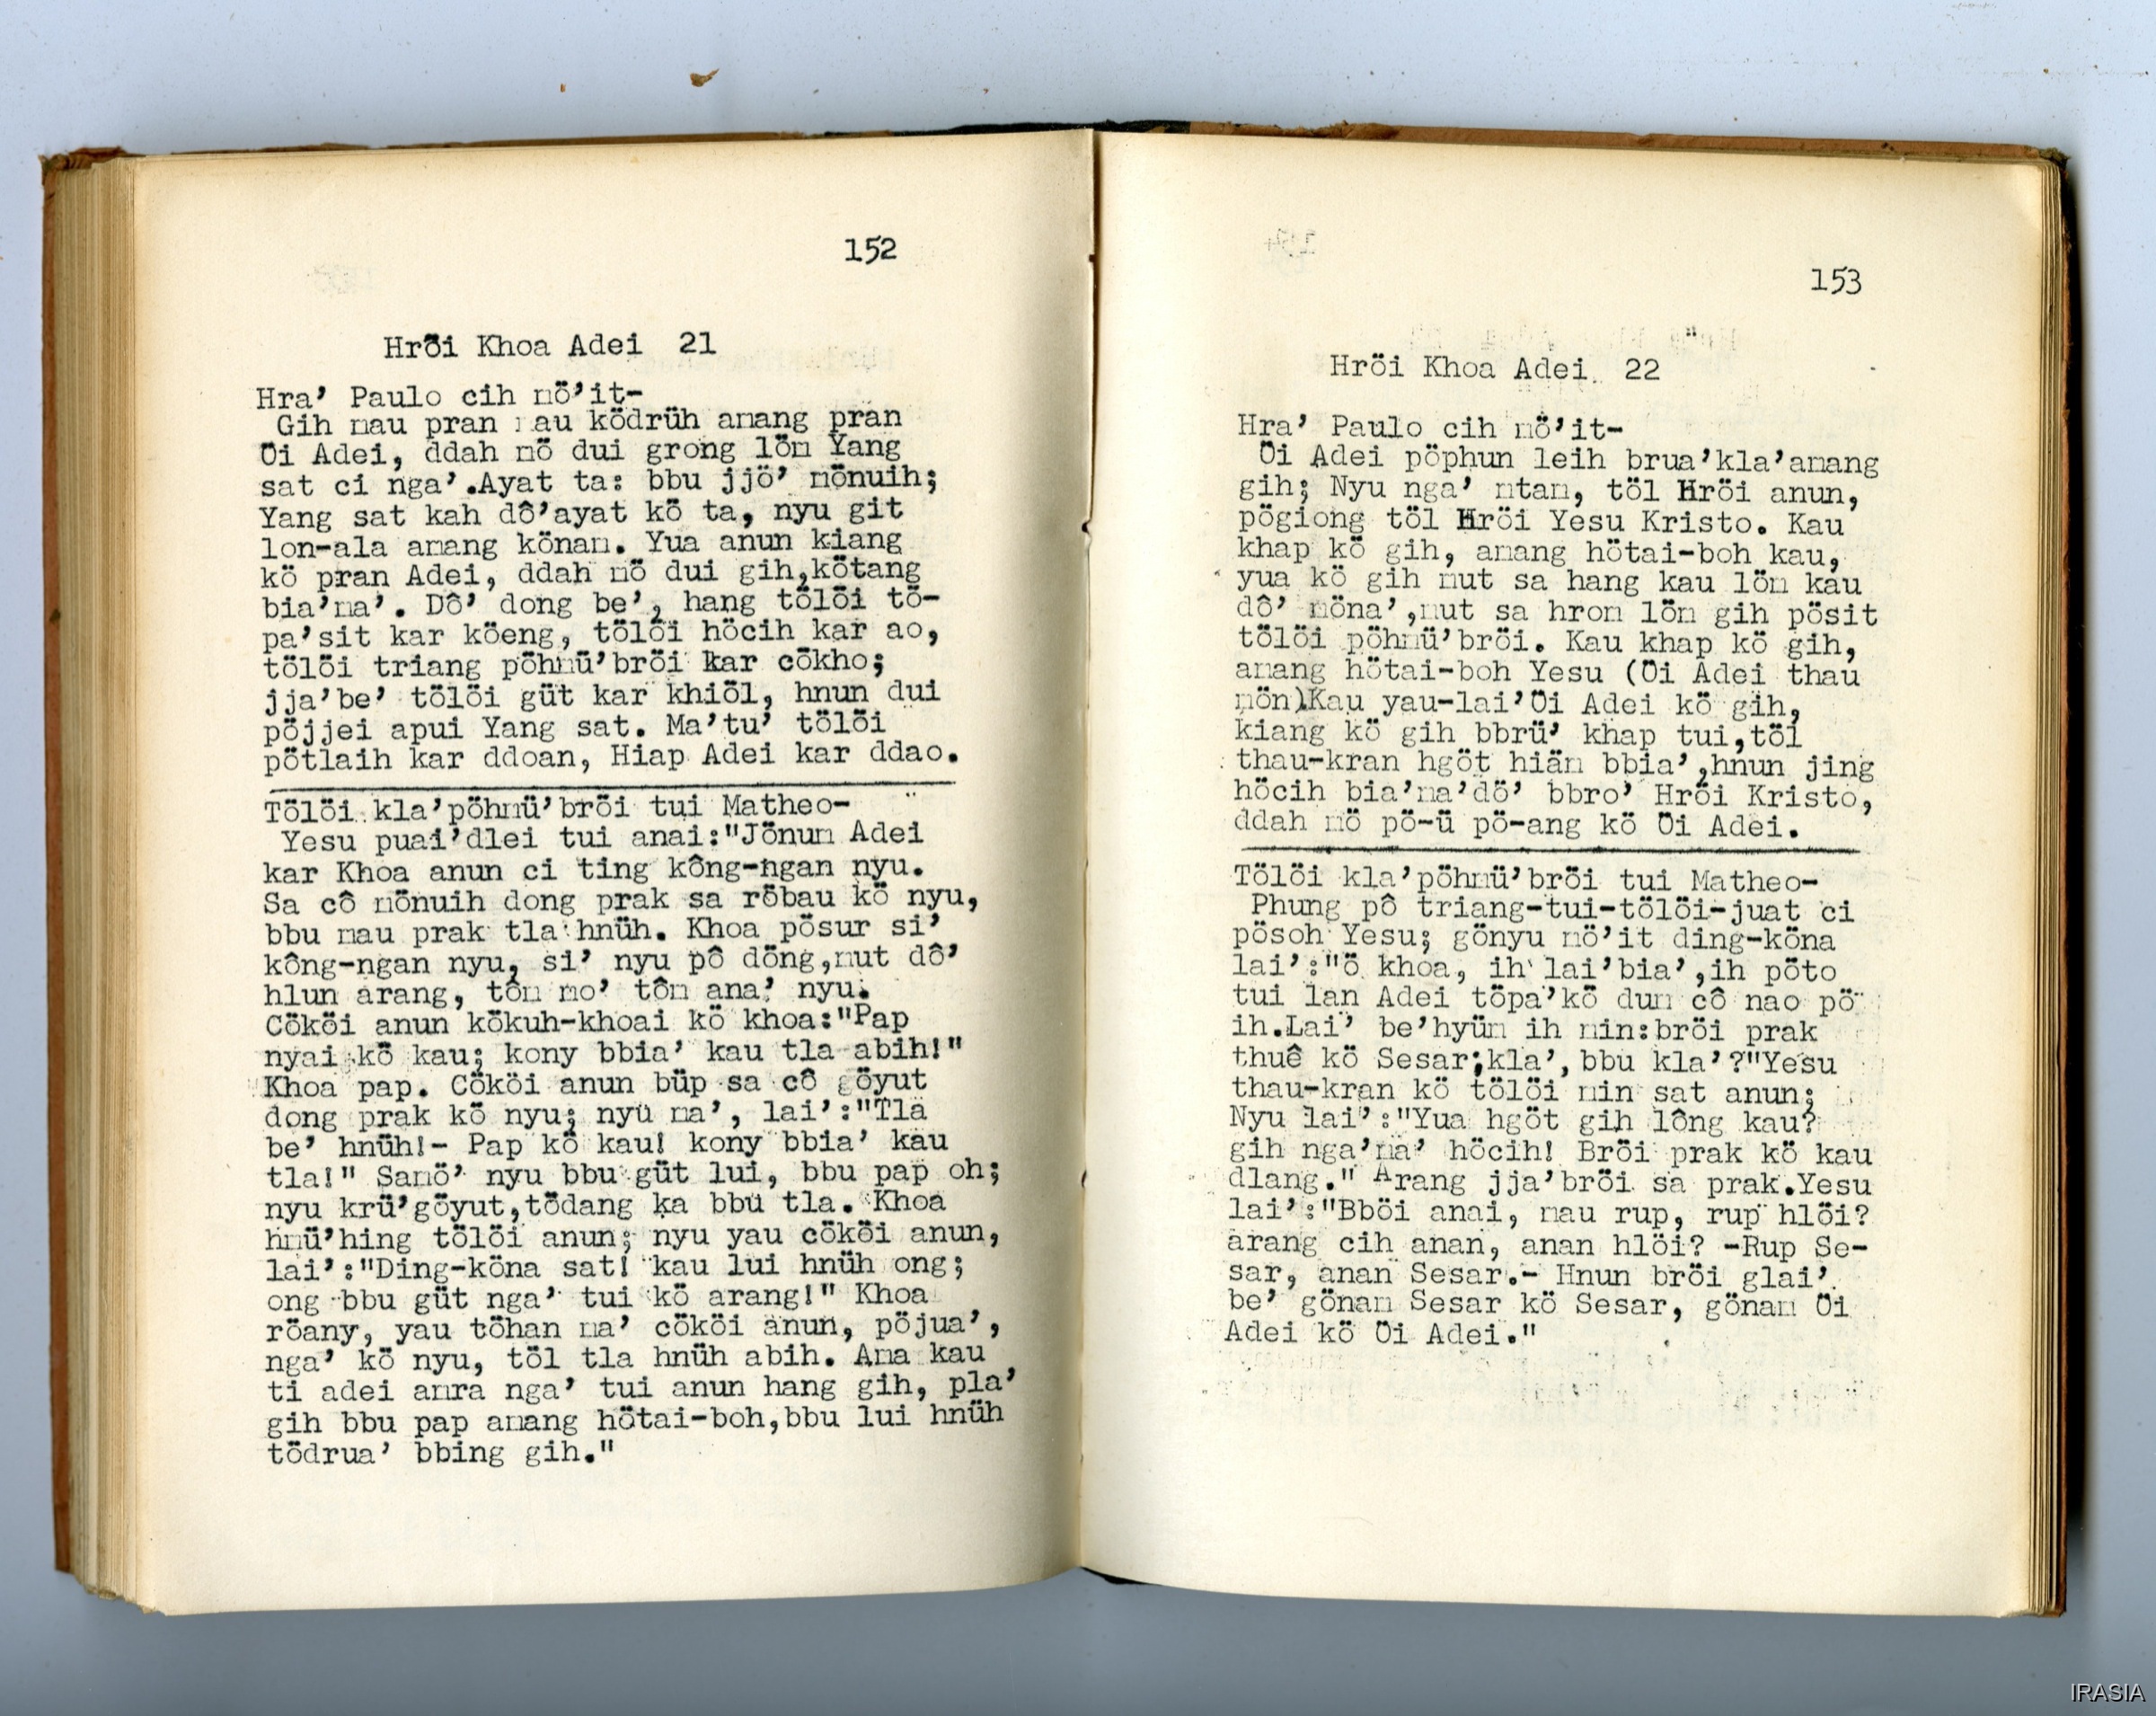 152
Hröi Khoa Adei 21
Hra’ Paulo cih mö’it-
Gih mau pran mau ködrüh amang pran
Öi Adei, ddah mö dui grong löm Yang
sat ci nga’.Ayat ta: bbu jjö’ mönuih;
Yang sat kah dô’ayat kö ta, nyu git
lon-ala amang könam. Yua anun kiang
kö pran Adei, ddah mö dui gih,kötang
bia’ma’. Dô’ dong be’, hang tölöi tö-
pa’sit kar köeng, tölöi höcih kar ao,
tölöi triang pöhmü’bröi kar cökho;
jja’be’ tölöi güt kar khiöl, hnun dui
pöjjei apui Yang sat. Ma’tu’ tölöi
pötlaih kar ddoan, Hiap Adei kar ddao.
Tölöi kla’pöhmü’bröi tui Matheo-
Yesu puai’dlei tui anai:"Jönum Adei
kar Khoa anun ci ting kông-ngan nyu.
Sa cô mönuih dong prak sa röbau kö nyu,
bbu mau prak tla hnüh. Khoa pösur si’
kông-ngan nyu, si’ nyu pô döng,mut dô’
hlun arang, tôm mo’ tôm ana’ nyu.
Cököi anun kökuh-khoai kö khoa:"Pap
nyai kö kau; kony bbia’ kau tla abih!"
Khoa pap. Cököi anun büp sa cô göyut
dong prak kö nyu; nyu ma’, lai’:"Tla
be’ hnüh!- Pap kö kau! kony bbia’ kau
tla!" Samö’ nyu bbu güt lui, bbu pap oh;
nyu krü’göyut,tödang ka bbu tla. Khoa
hmü’hing tölöi anun; nyu yau cököi anun,
lai’:"Ding-köna sat! kau lui hnüh ong;
ong bbu güt nga’ tui kö arang!" Khoa
röany, yau töhan ma’ cököi anun, pöjua’,
nga’ kö nyu, töl tla hnüh abih. Ama kau
ti adei amra nga’ tui anun hang gih, pla’
gih bbu pap amang hötai-boh,bbu lui hnüh
tödrua’ bbing gih."
153
Hröi Khoa Adei 22
Hra’ Paulo cih mö’it-
Öi Adei pöphun leih brua’kla’amang
gih; Nyu nga’ ntam, töl Hröi anun,
pögiong töl Hröi Yesu Kristo. Kau
khap kö gih, amang hötai-boh kau,
yua kö gih mut sa hang kau löm kau
dô’ möna’,mut sa hrom löm gih pösit
tölöi pöhmü’bröi. Kau khap kö gih,
amang hötai-boh Yesu (Öi Adei thau
mön)Kau yau-lai’Öi Adei kö gih,
kiang kö gih bbrü’ khap tui,töl
thau-kran hgöt hiäm bbia’,hnun jing
höcih bia’ma’dö’ bbro’ Hröi Kristo,
ddah mö pö-ü pö-ang kö Öi Adei.
Tölöi kla’pöhmü’bröi tui Matheo-
Phung pô triang-tui-tölöi-juat ci
pösoh Yesu; gönyu mö’it ding-köna
lai’:"ö khoa, ih lai’bia’,ih pöto
tui lan Adei töpa’kö dum cô nao pö
ih.Lai’ be’hyüm ih min:bröi prak
thuê kö Sesar;kla’, bbu kla’?"Yesu
thau-kran kö tölöi min sat anun;
Nyu lai’:"Yua hgöt gih lông kau?
gih nga’ma’ höcih! Bröi prak kö kau
dlang." Arang jja’bröi sa prak.Yesu
lai’:"Bböi anai, mau rup, rup hlöi?
arang cih anan, anan hlöi? -Rup Se-
sar, anan Sesar.- Hnun bröi glai’
be’ gönam Sesar kö Sesar, gönam Öi
Adei kö Öi Adei."
IRASIA